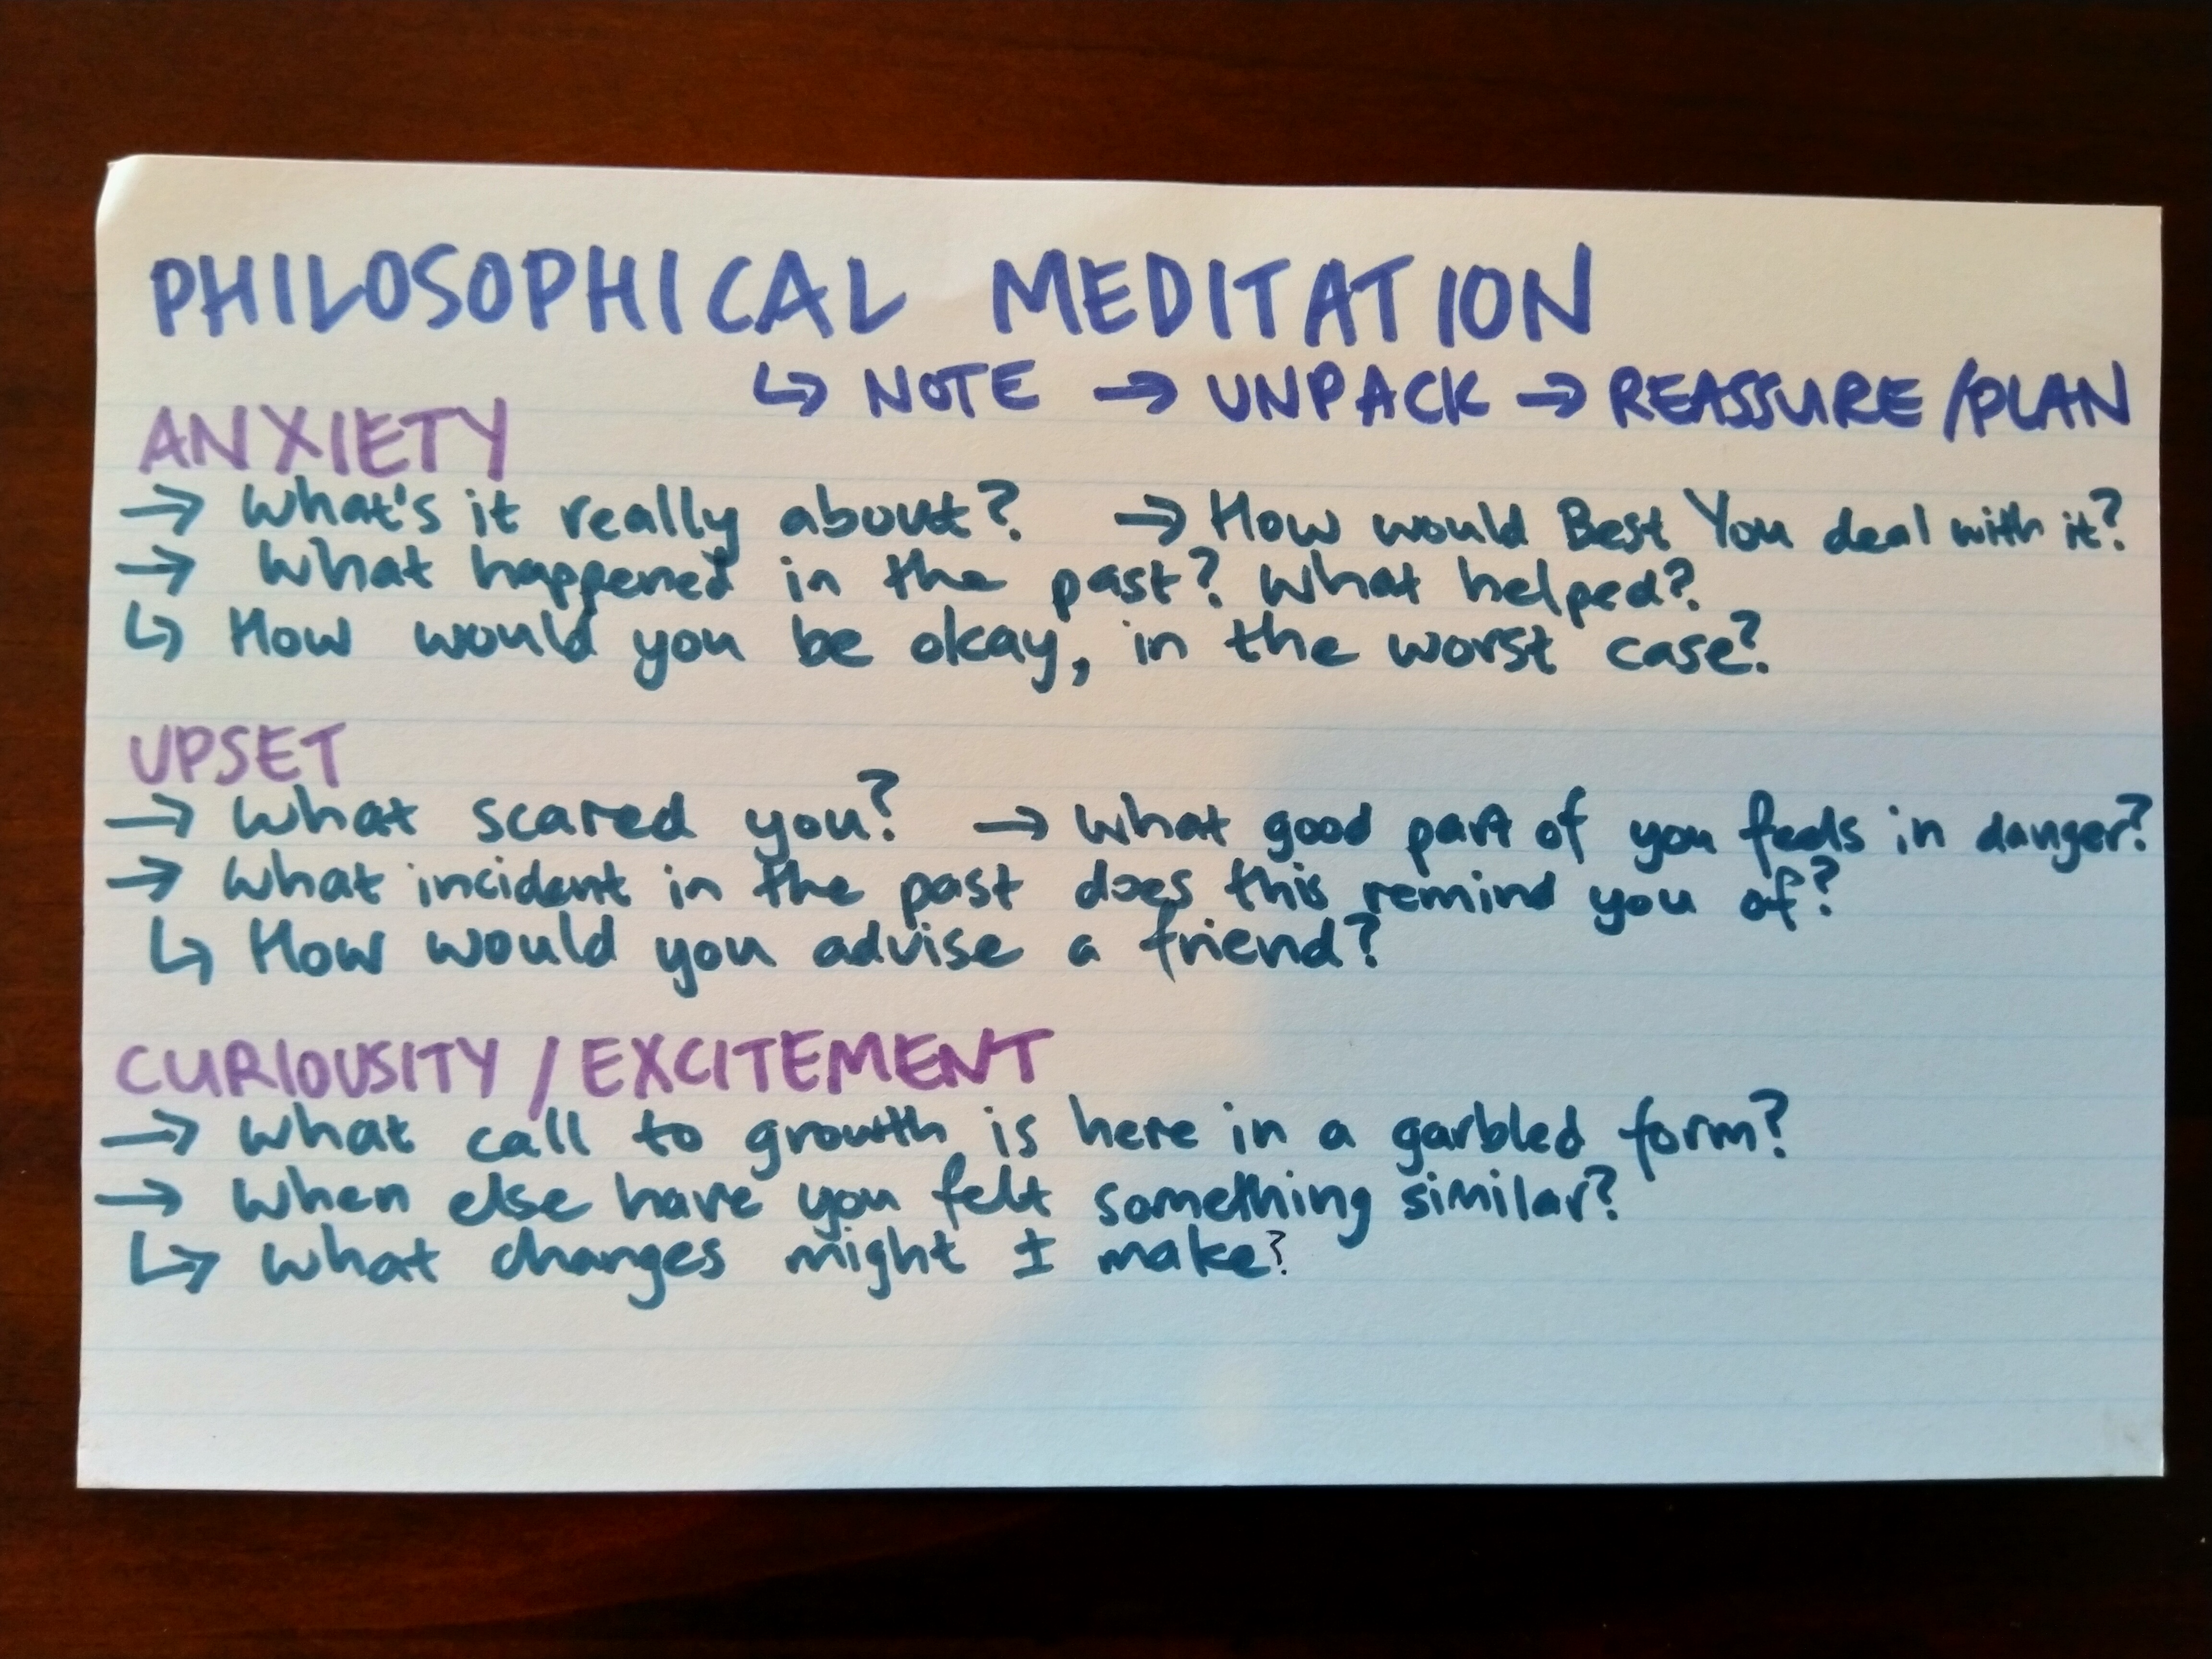 PHILOSOPHICAL MEDITATION
↳ NOTE → UNPACK → REASSURE/PLAN
ANXIETY
→ What's it really about? → How would Best You deal with it?
→ What happened in the past? What helped?
↳ How would you be okay, in the worst case?
UPSET
→ What scared you? → What good part of you feels in danger?
→ What incident in the past does this remind you of?
↳ How would you advise a friend?
CURIOUSITY / EXCITEMENT
→ What call to growth is here in a garbled form?
→ When else have you felt something similar?
↳ What changes might I make?